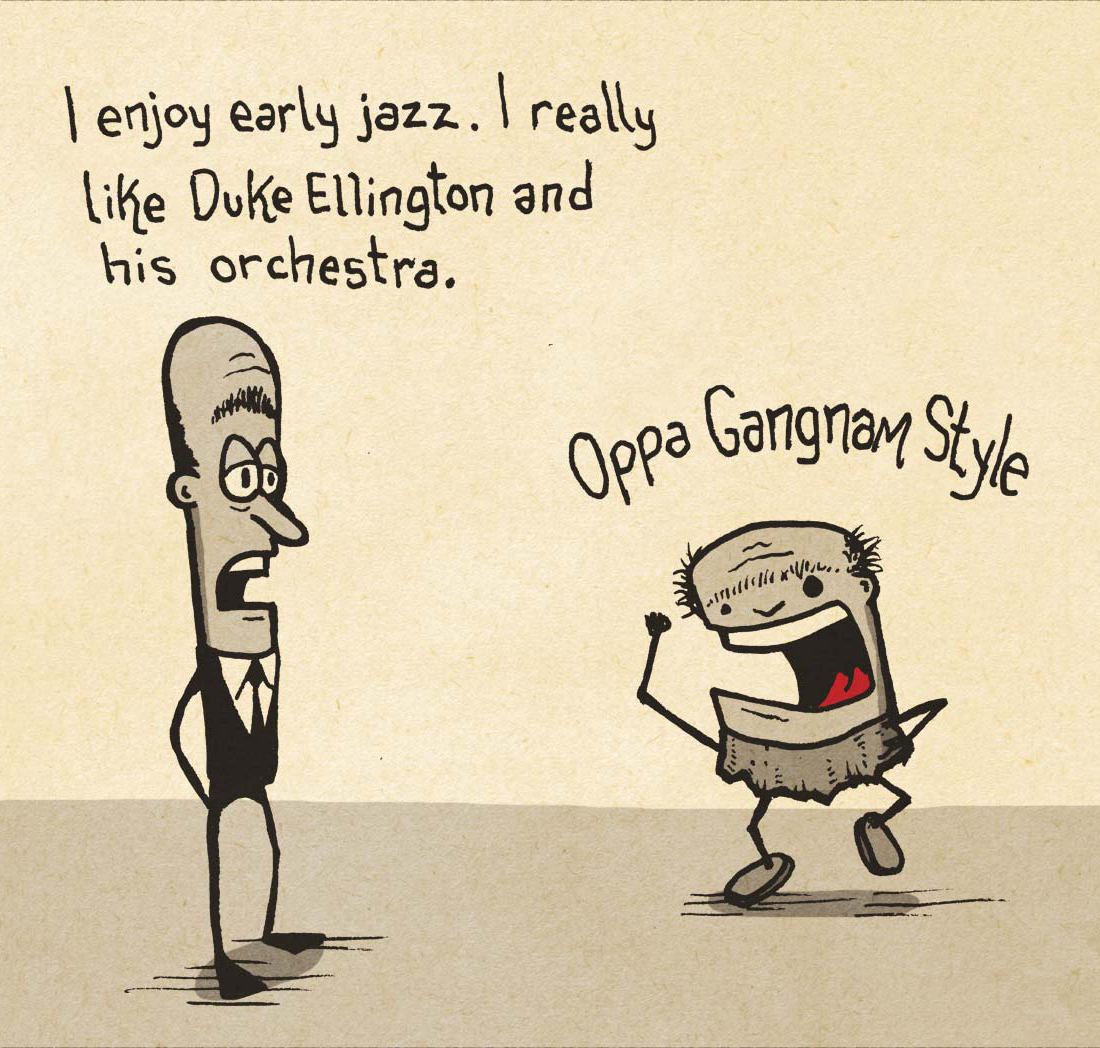 I enjoy early jazz. I really
like Duke Ellington and
his orchestra.
Oppa Gangnam Style